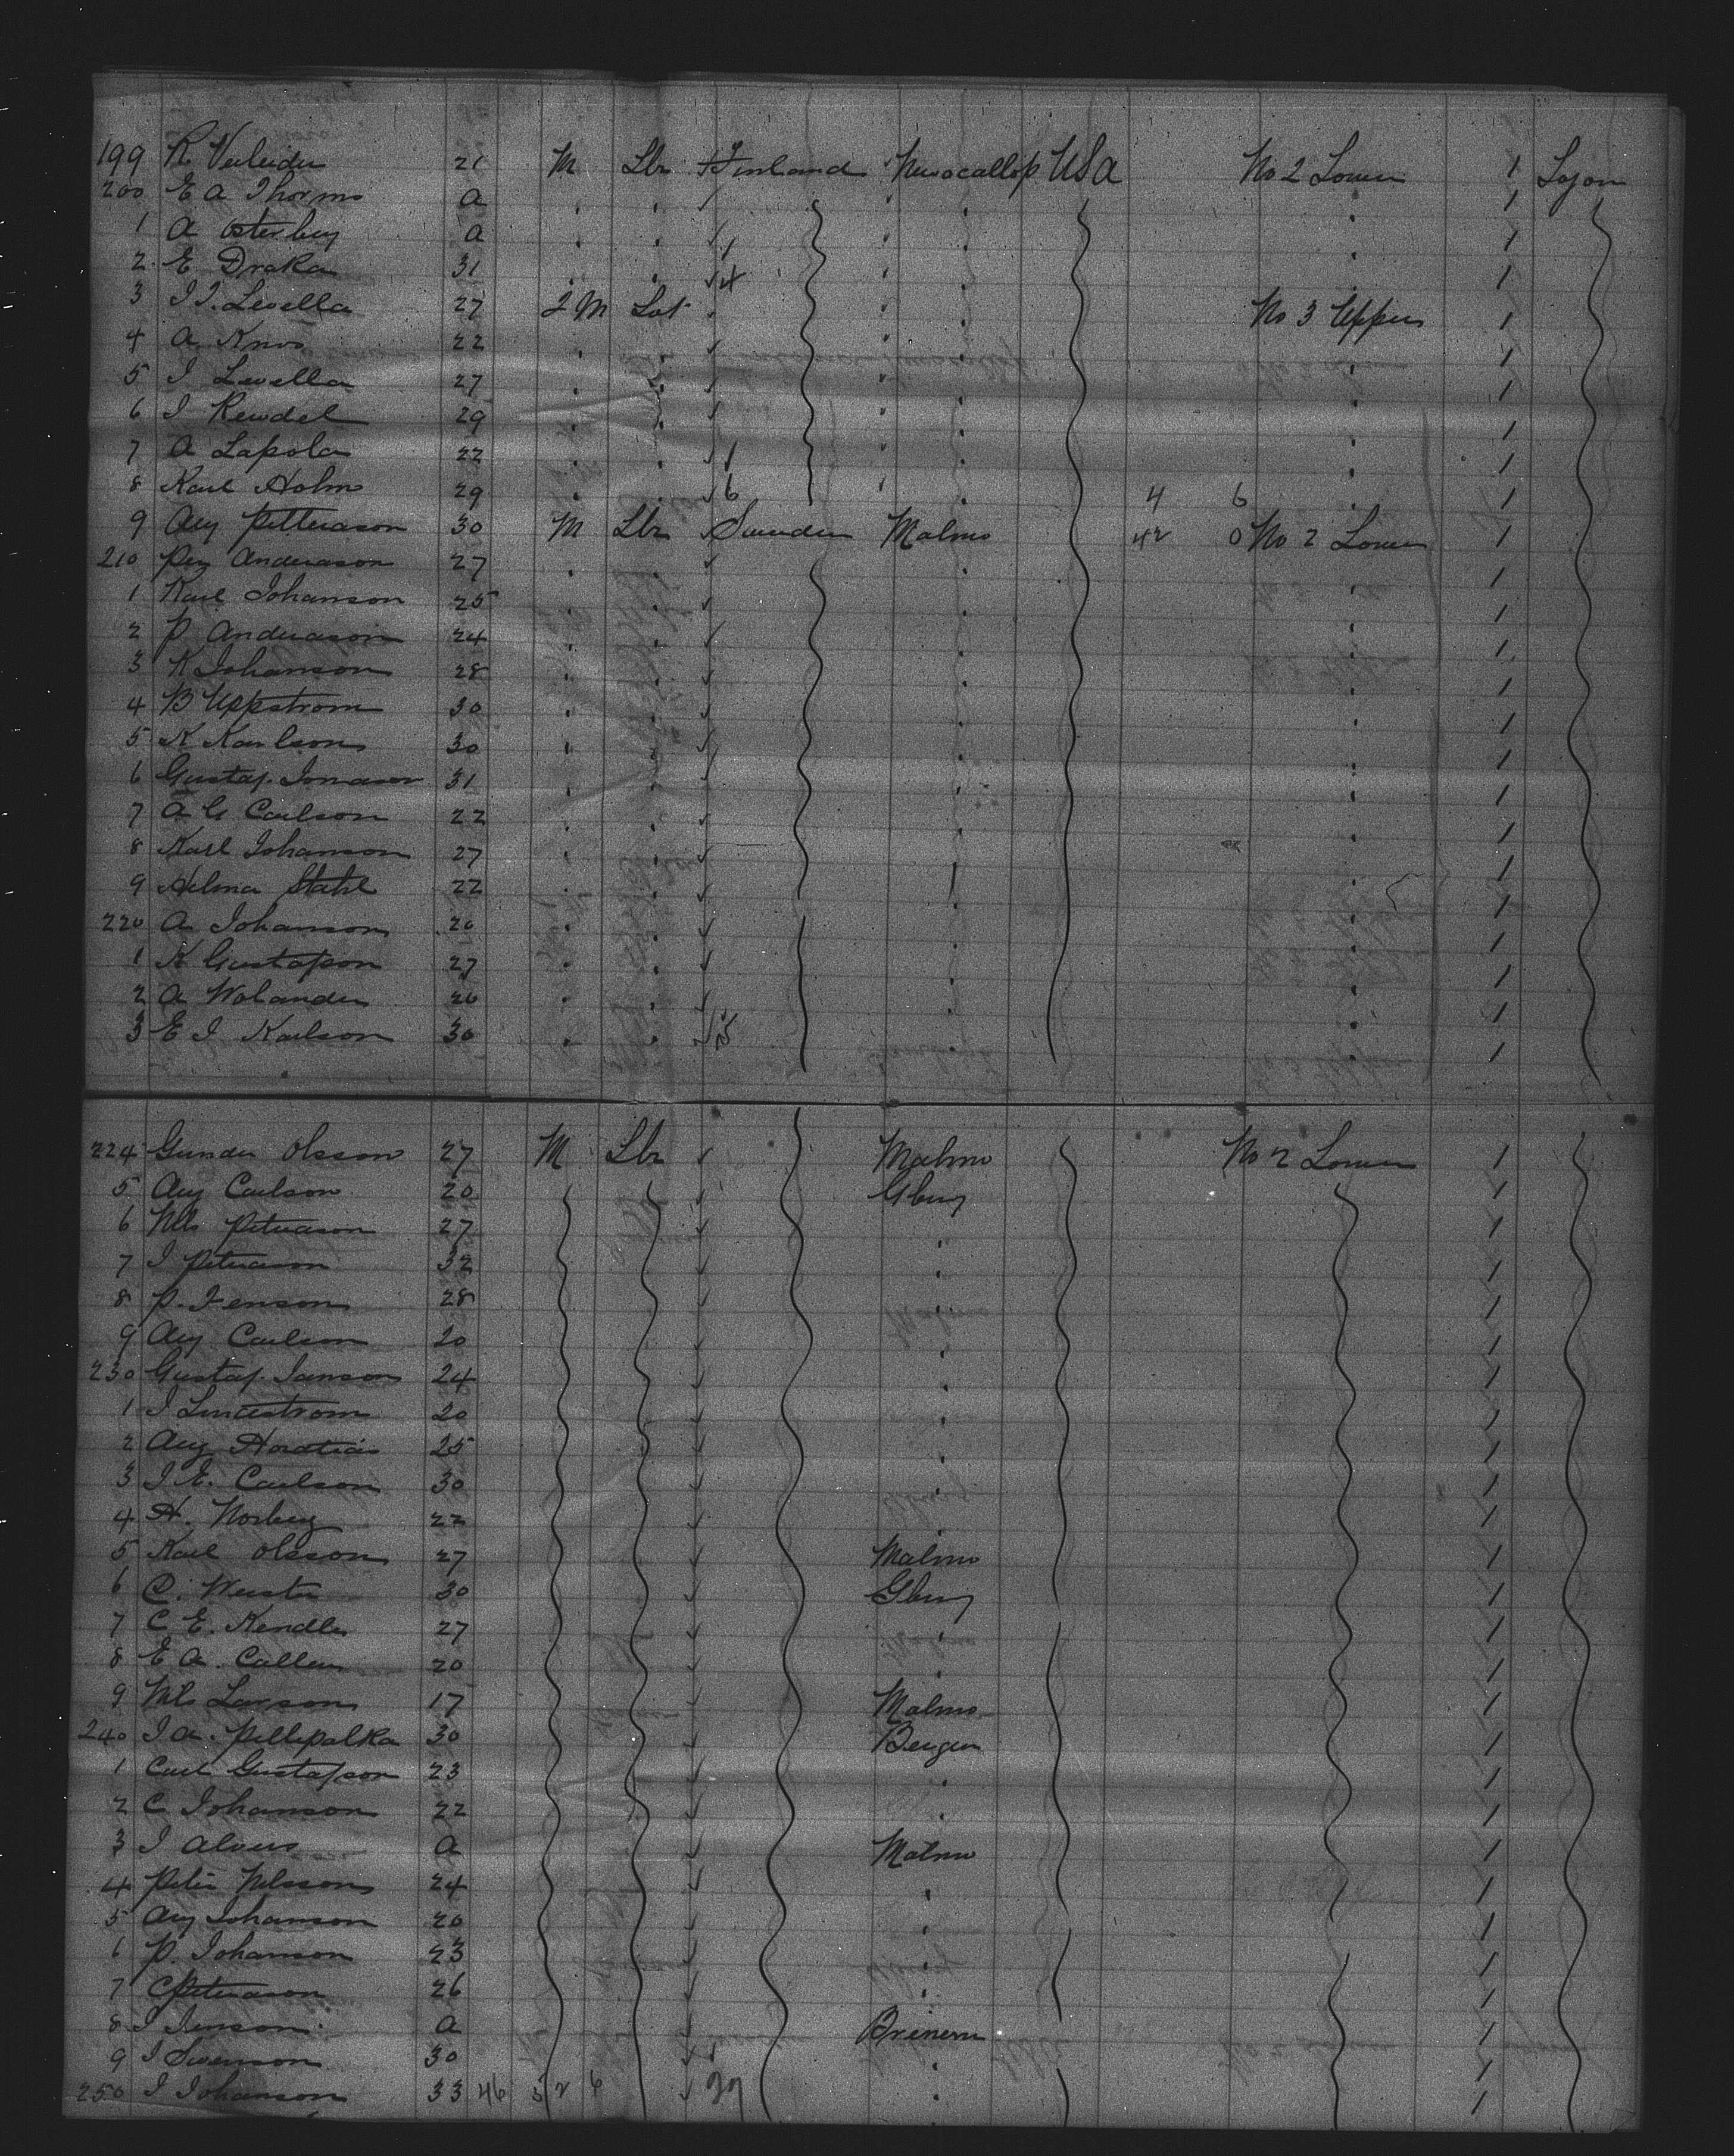 199 R 21 M Lbr Finland USA No 2 Lower 1
200 E A Thorms a 1
1 A Osterberg a 1
2 E Draka 31 4 1
3 I I. Levella 27 2 M Lbr No 3 Upper 1
4 A Knos 22 1
5 I Levella 27 1
6 I Rewdel 29 1
7 A Lapola 22 1
8 Karl Holm 29 6 4 6 1
9 Aug Petterason 30 M Lbr Sweden Malmo 42 0 No 2 Lower 1
210 Per Anderason 27 1
1 Karl Johanson 25 1
2 P Anderason 24 1
3 K Johanson 28 1
4 B Uppstrom 30 1
5 K Karlson 30 1
6 Gustaf Jonason 31 1
7 A G Carlson 22 1
8 Karl Johanson 27 1
9 Helma Stahl 22 1
220 A Johanson 20 1
1 K Gustafson 27 1
2 A Wolander 26 1
3 E I Karlson 30 1
224 Gunder Olsson 27 M Lbr Malmo No 2 Lower 1
5 Aug Carlson 20 Gburg 1
6 Nils Peterason 27 1
7 I Peterason 32 1
8 P. Jenson 28 1
9 Aug Carlson 20 1
230 Gustaf Janson 24 1
1 I Lindstrom 20 1
2 Aug 25 1
3 I E. Carlson 30 1
4 H. Norberg 22 1
5 Karl Olsson 27 Malmo 1
6 C. 30 Gburg 1
7 C E. Kendler 27 1
8 E A. Callen 20 1
9 Nils Larson 17 Malmo 1
240 I A. Pellepalka 30 Bergen 1
1 Carl Gustafson 23 1
2 C Johanson 22 1
3 I Alvers a Malmo 1
4 Peter Nelsson 24 1
5 Aug Johanson 20 1
6 P. Johanson 23 1
7 C Peterason 26 1
8 I Jenson a 1
9 I Swenson 30 1
250 I Johanson 33 46 52 6 1